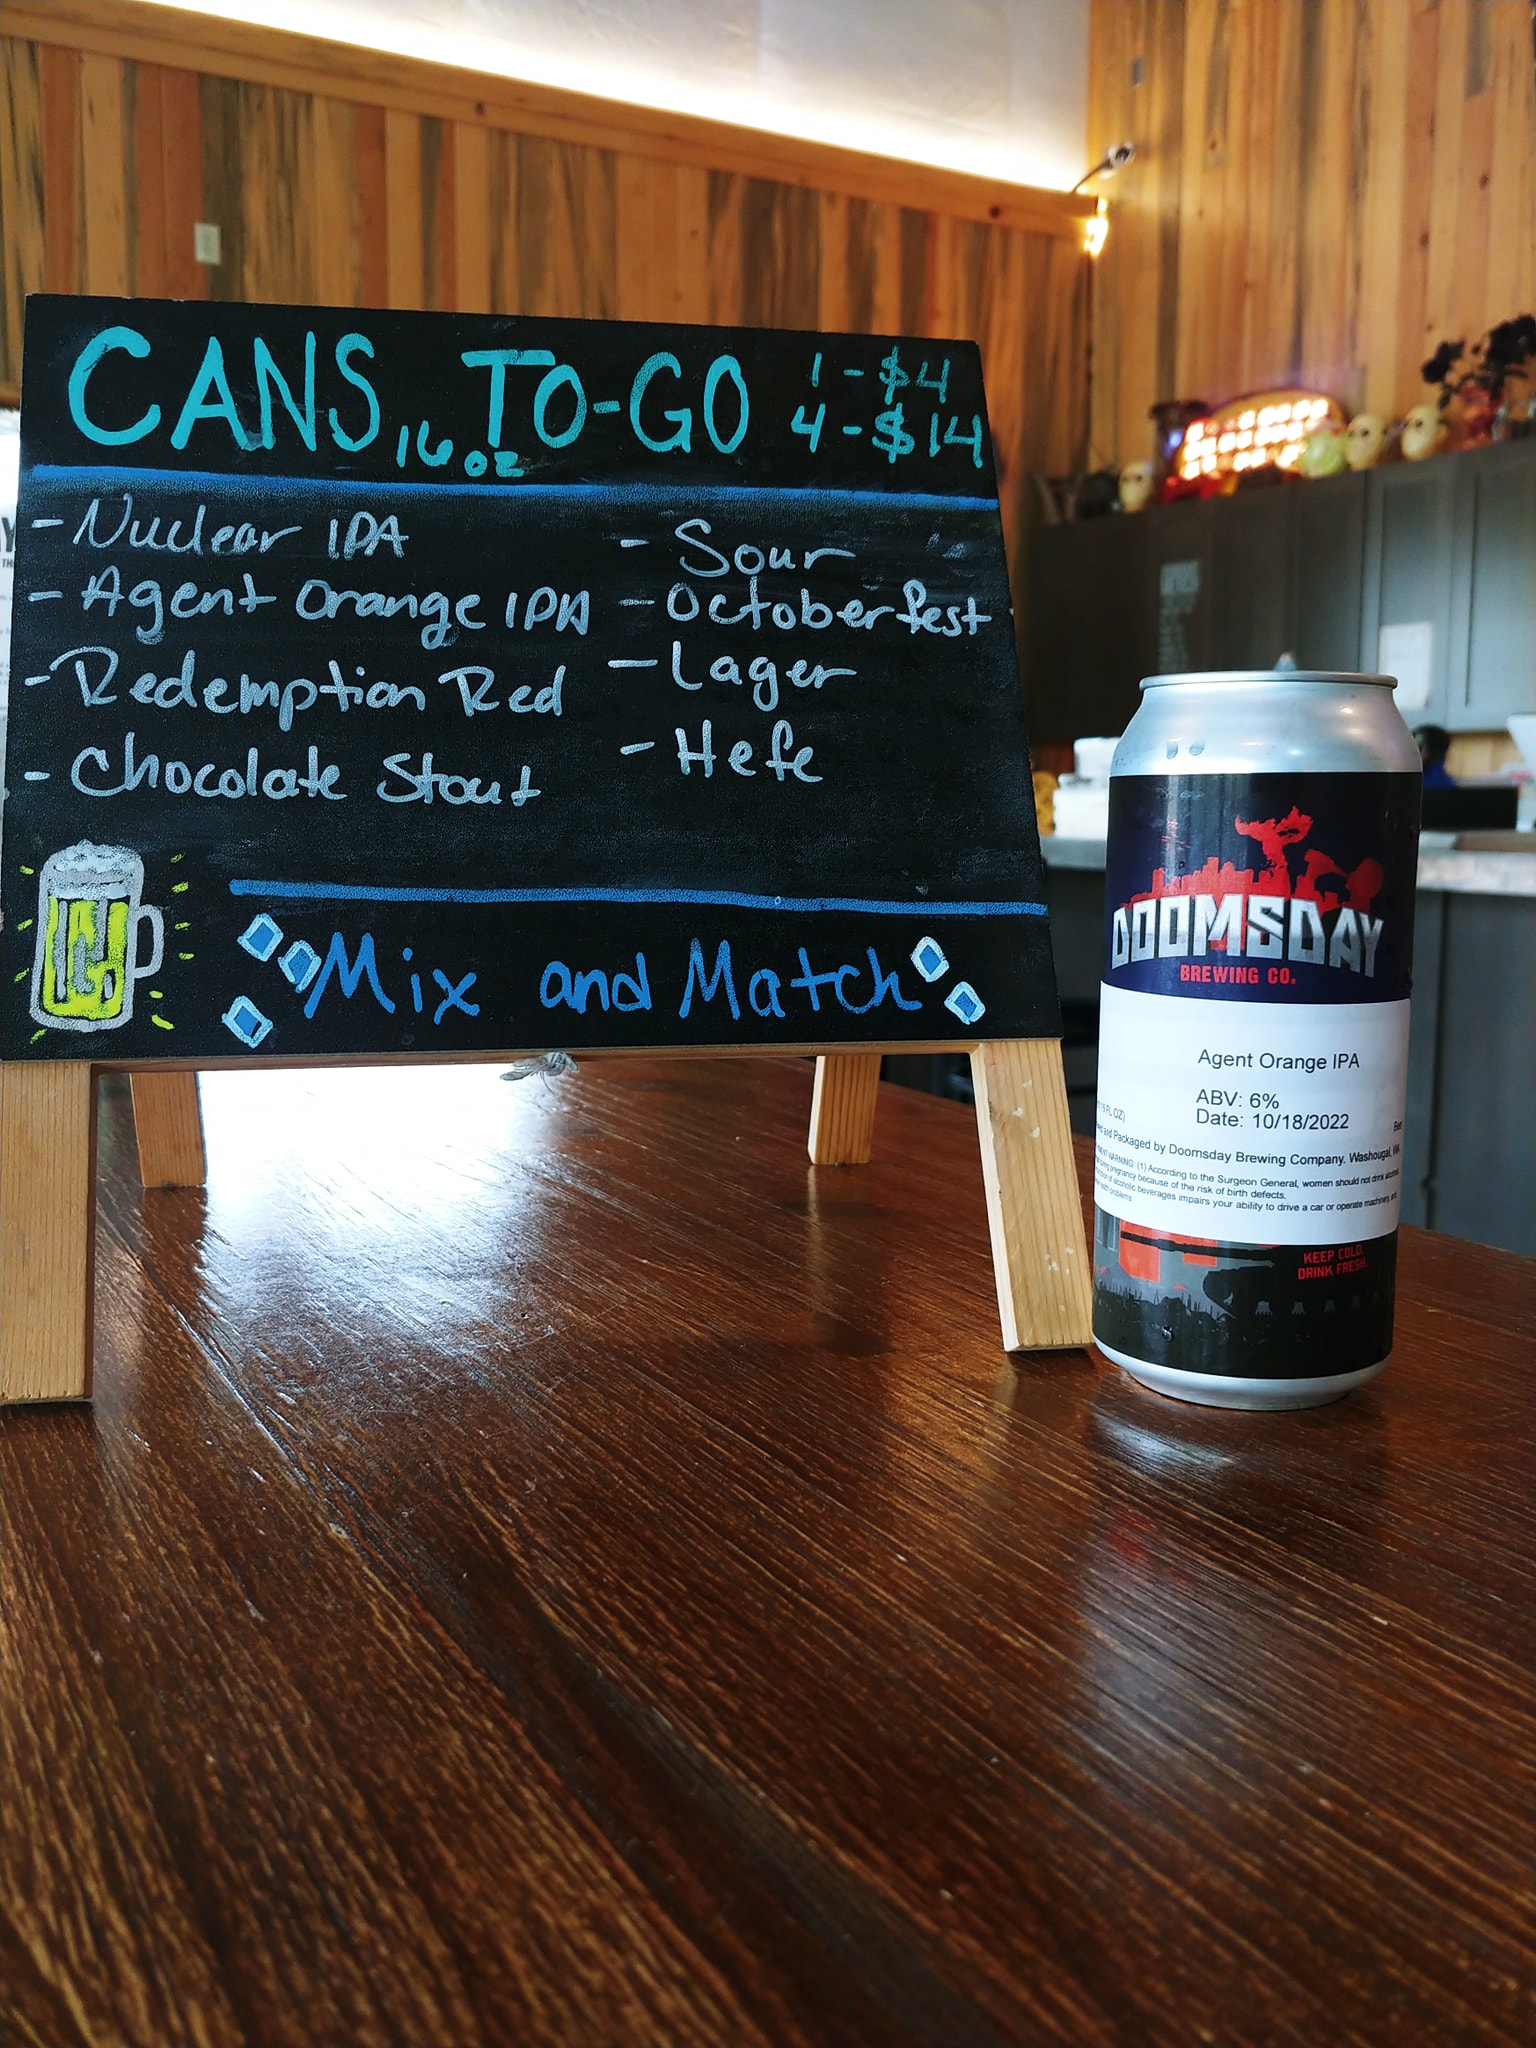 CANS 16 oz TO-GO
1 - $4
4 - $14
- Nuclear IPA
- Agent Orange IPA
- Redemption Red
- Chocolate Stout
- Sour
- Octoberfest
- Lager
- Hefe
Mix and Match
DOOMSDAY
BREWING CO.
Agent Orange IPA
ABV: 6%
Date: 10/18/2022
FL OZ)
and Packaged by Doomsday Brewing Company, Washougal, WA
WARNING: (1) According to the Surgeon General, women should not drink alcoholic
during pregnancy because of the risk of birth defects.
of alcoholic beverages impairs your ability to drive a car or operate machinery, and
health problems
KEEP COLD.
DRINK FRESH.